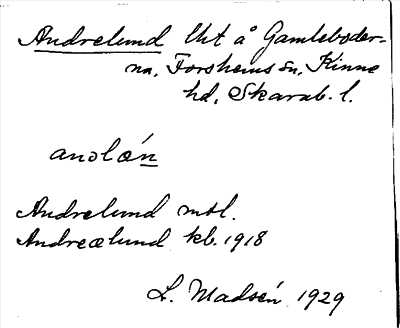 Andrelund lht å Gamleboder-
na, Forshems sn, Kinne
hd, Skarab. l.
andlǽn
Andrelund mtl.
Andreælund kb. 1918
L. Madsén 1929